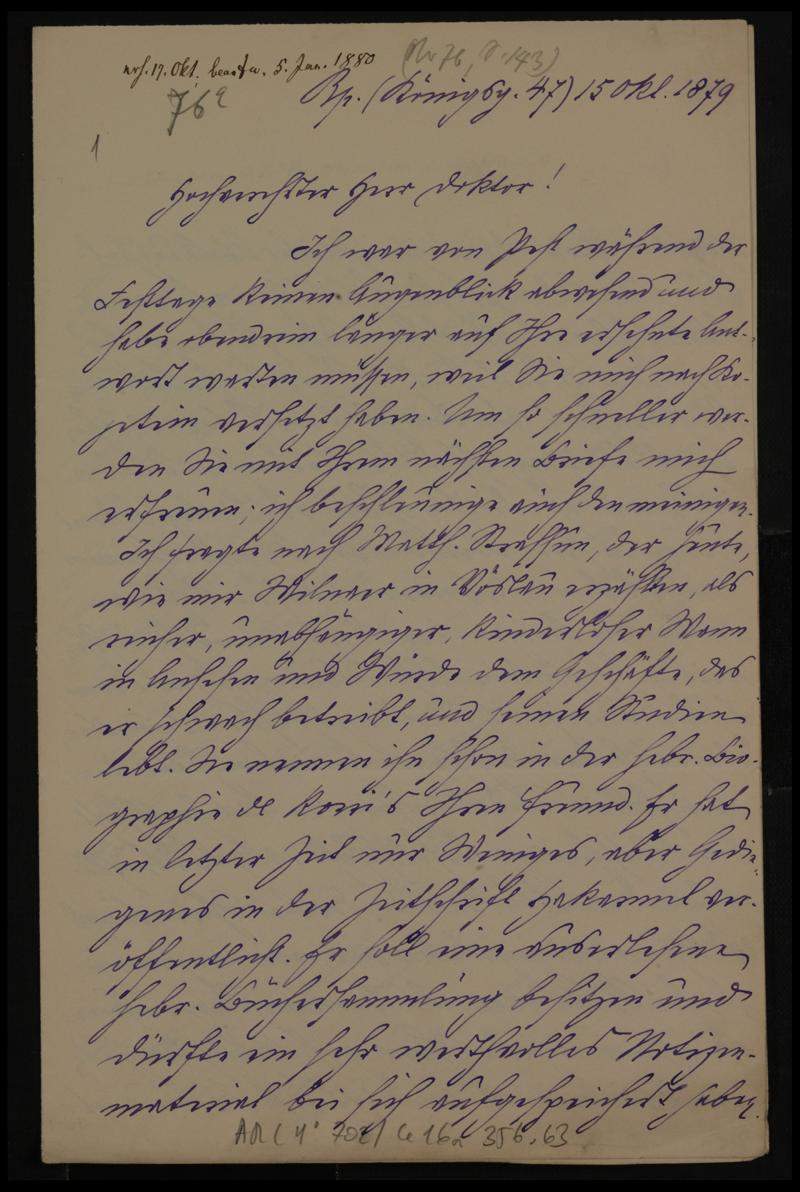 erh. 17. Okt. beantw. 5. Jan. 1880
(Nr 76, S. 143)
76a
Bp. (Königsg. 47) 15 Okt. 1879
1
Hochverehrter Herr Doktor!
Ich war von Pest während der
Festtage keinen Augenblick abwesend und
habe obendrein länger auf Ihre ersehnte Ant-
wort warten müssen, weil Sie mich nach Ko-
jetein versetzt haben. Um so schneller wer-
den Sie mit Ihrem nächsten Briefe mich
erfreuen; ich beschleunige auch den meinigen.
Ich fragte nach Matth. Straschun, der heute,
wie mir Wilnaer in Vöslau erzählten, als
reicher, unabhängiger, kinderloser Mann
in Ansehen und Würde dem Geschäfte, das
er schwach betreibt, und seinen Studien
lebt. Sie nennen ihn schon in der hebr. Bio-
graphie de Rossi's Ihren Freund. Er hat
in letzter Zeit nur Weniges, aber Gedie-
genes in der Zeitschrift Hakarmel ver-
öffentlicht. Er soll eine auserlesene
hebr. Büchersammlung besitzen und
dürfte ein sehr werthvolles Notizen-
material bei sich aufgespeichert haben.
356.63